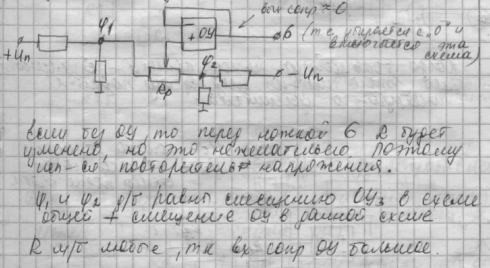 вых сопр ≈ 0
φ1
+Uп
- + ОУ
6 (т.к. убирается с "0" и
включается эта
схема)
φ2
Rр
-Uп
Если без ОУ, то перед ножкой 6 R будет
изменено, но это нежелательно поэтому
исп-ся повторитель напряжения.
φ1 и φ2 д/б равны смещению ОУ3 в схеме
общей + смещение ОУ в данной схеме
R м/б любые, т.к вх сопр ОУ большое.